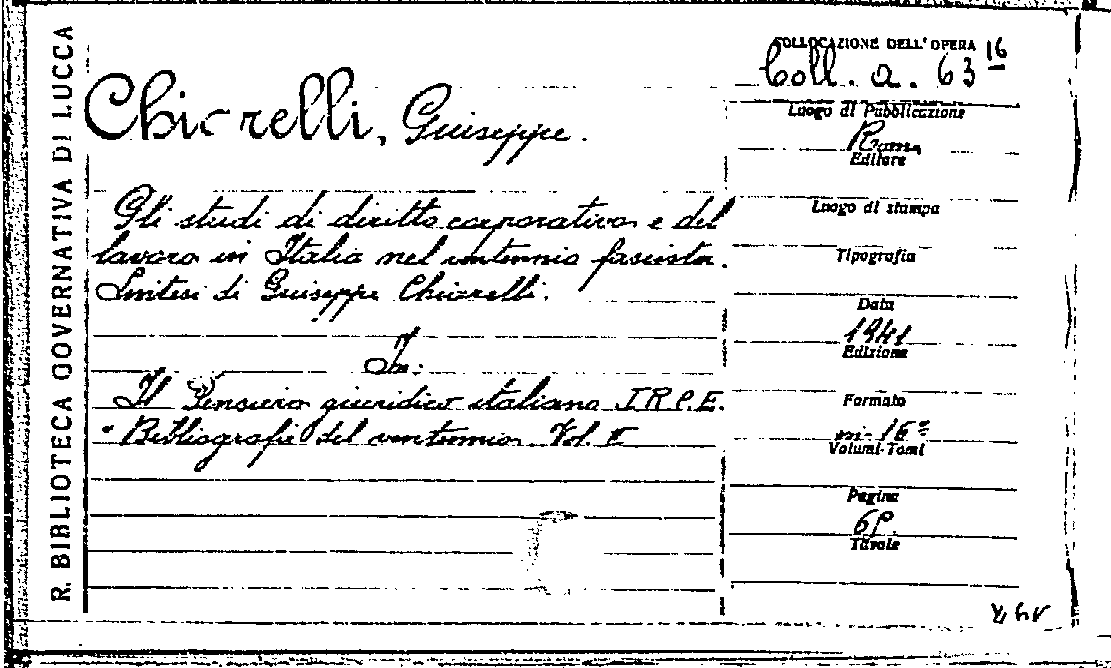 R. BIBLIOTECA GOVERNATIVA DI LUCCA
Chiarelli, Giuseppe.
Gli studi di diritto corporativo e del
lavoro in Italia nel ventennio fascista.
Sintesi di Giuseppe Chiarelli.
In:
Il Pensiero giuridico italiano I.R.P.E.
Bibliografie del ventennio. Vol. II
COLLOCAZIONE DELL'OPERA
Coll. a. 63 16
Luogo di Pubblicazione
Roma
Editore
Luogo di stampa
Tipografia
Data
1941
Edizione
Formato
in-16º
Volumi-Tomi
Pagine
Tavole